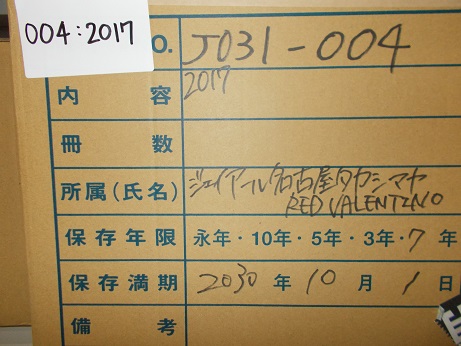 004:2017
O. J031-004
内容 2017
冊数
所属(氏名) ジェイアール名古屋タカシマヤ
RED VALENTINO
保存年限 永年・10年・5年・3年・7年
保存満期 2030年10月1日
備考